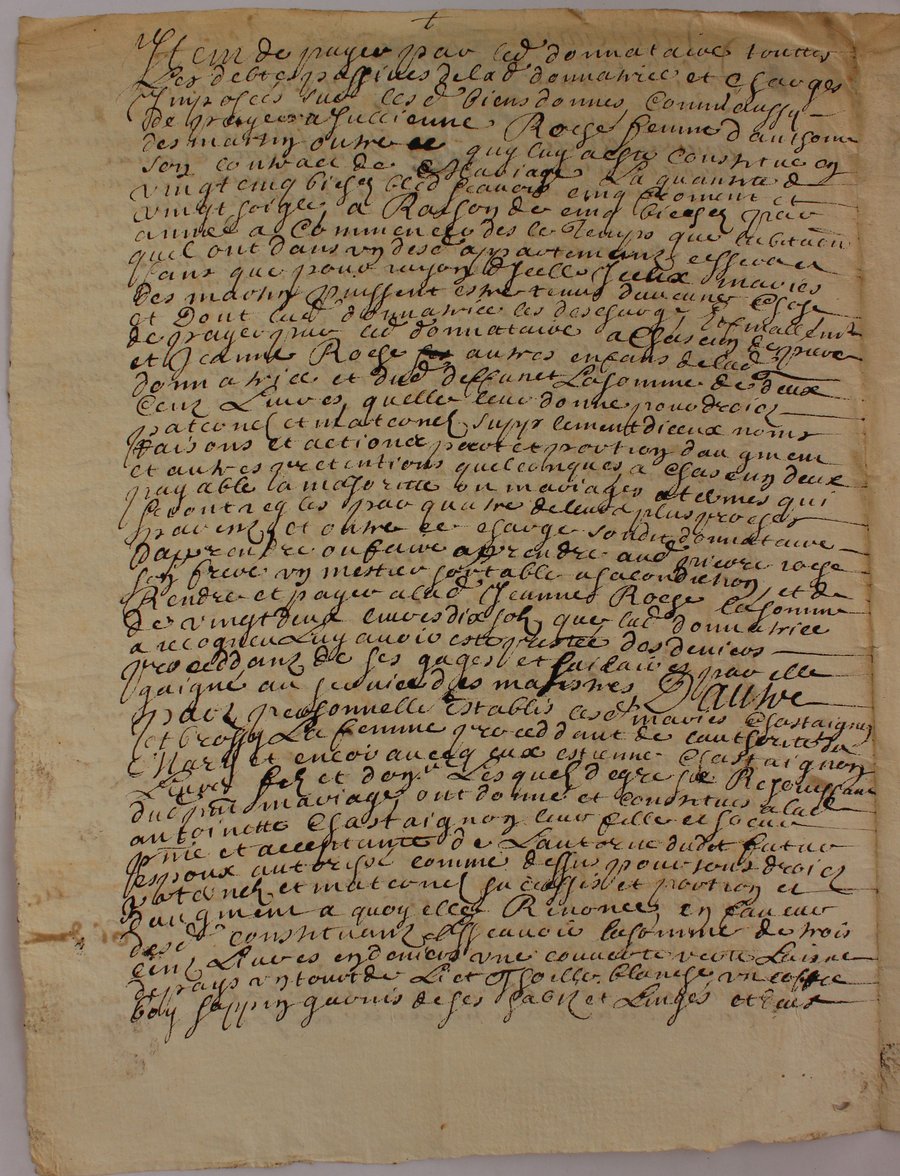 Item de payer par led donnataire touttes
Les debtes passives de lad donnatrice et charges
Imposées sur lesd biens donnés, comm'aussy
de payer a Roche femme d'anthoine
des martin outre ce quy luy a esté constitué en
son contract de Mariage La quantité de
vingt cinq bled scavoir cinq froment et
vingt soigle, a Raison de cinq par
année a commencer des le temps que
quel ont dans un desd appartemens
sans que pour rayson d'Icelle Iceux mariés
des martin puissent estre tenus d'aucune chose
et Dont lad donnatrice les descharge Et
de payer par led donnattaire a chascun de pierre
et Jeanne Roche autres enfans de lad
donnatrice et dud deffunct La somme de deux
Cent Livres, quelle leur donne pour droicts
paternel et maternel supplement d'iceux noms
Raisons et actions part et portion d'augment
et autres pretentions quelconques, a chascun deux
payable la majorité ou mariages et termes qui
seront reglés par quatre de leurs plus proches
parents, et outre ce charge sond donnataire
d'apprendre ou faire apprendre aud pierre roche
son frere un mestier sortable a sa condition, et de
Rendre et payer a lad Jeanne Roche la somme
de vingt deux livres dix sols que lad donnatrice
a recogneu Luy avoir esté prestée des deniers
proceddant de ses gages et salaires par elle
gaigné au service des maistres D'autre
part personnellemt Establis lesd mariés Chastaignon
et brossy La femme proceddant de l'authorité du
Mary et encor avecq eux estienne Chastaignon
Leur fils et donre Lesquels de gré se Resjouissant
du pnt mariage ont donné et constitué a lad
antoinette Chastaignon leur fille et soeur
pnte et acceptante de L'autorité dudt futur
espoux autorisé comme dessus pour tous droicts
paternel et maternel successif et portion et
d'augment a quoy elle Renonce en faveur
desd constituants Scavoir la somme de trois
Cens Livres en deniers une couverte verte Laisne
de pays un tour de Lict Thoille blanche un coffre
boy sappin garnis de ses habits et Linges et